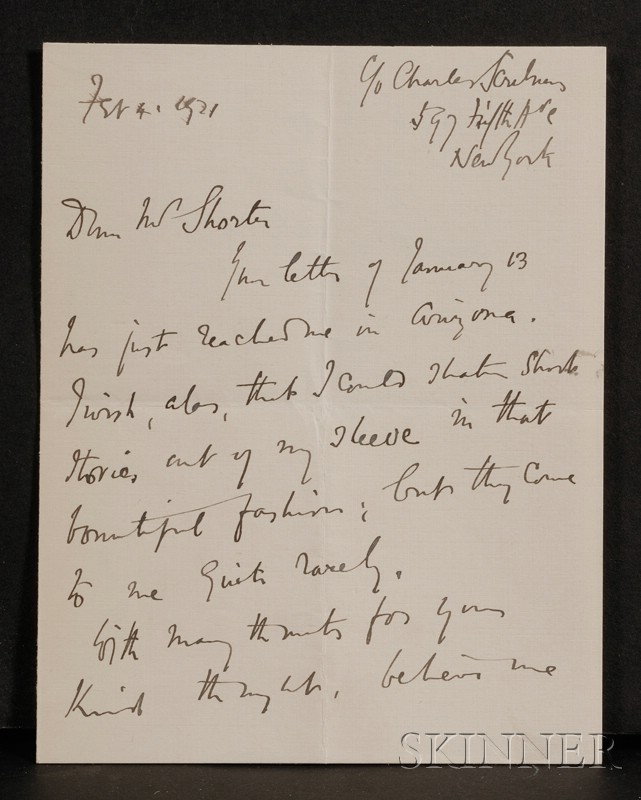 c/o Charles Scribners
597 Fifth Ave
New York
Feb 4. 1921
Dear Mr Shorter
Your letter of January 13
has just reached me in Arizona.
I wish, alas, that I could shake short
stories out of my sleeve in that
bountiful fashion; but they come
to me quite rarely.
With many thanks for your
kind thought, believe me
SKINNER